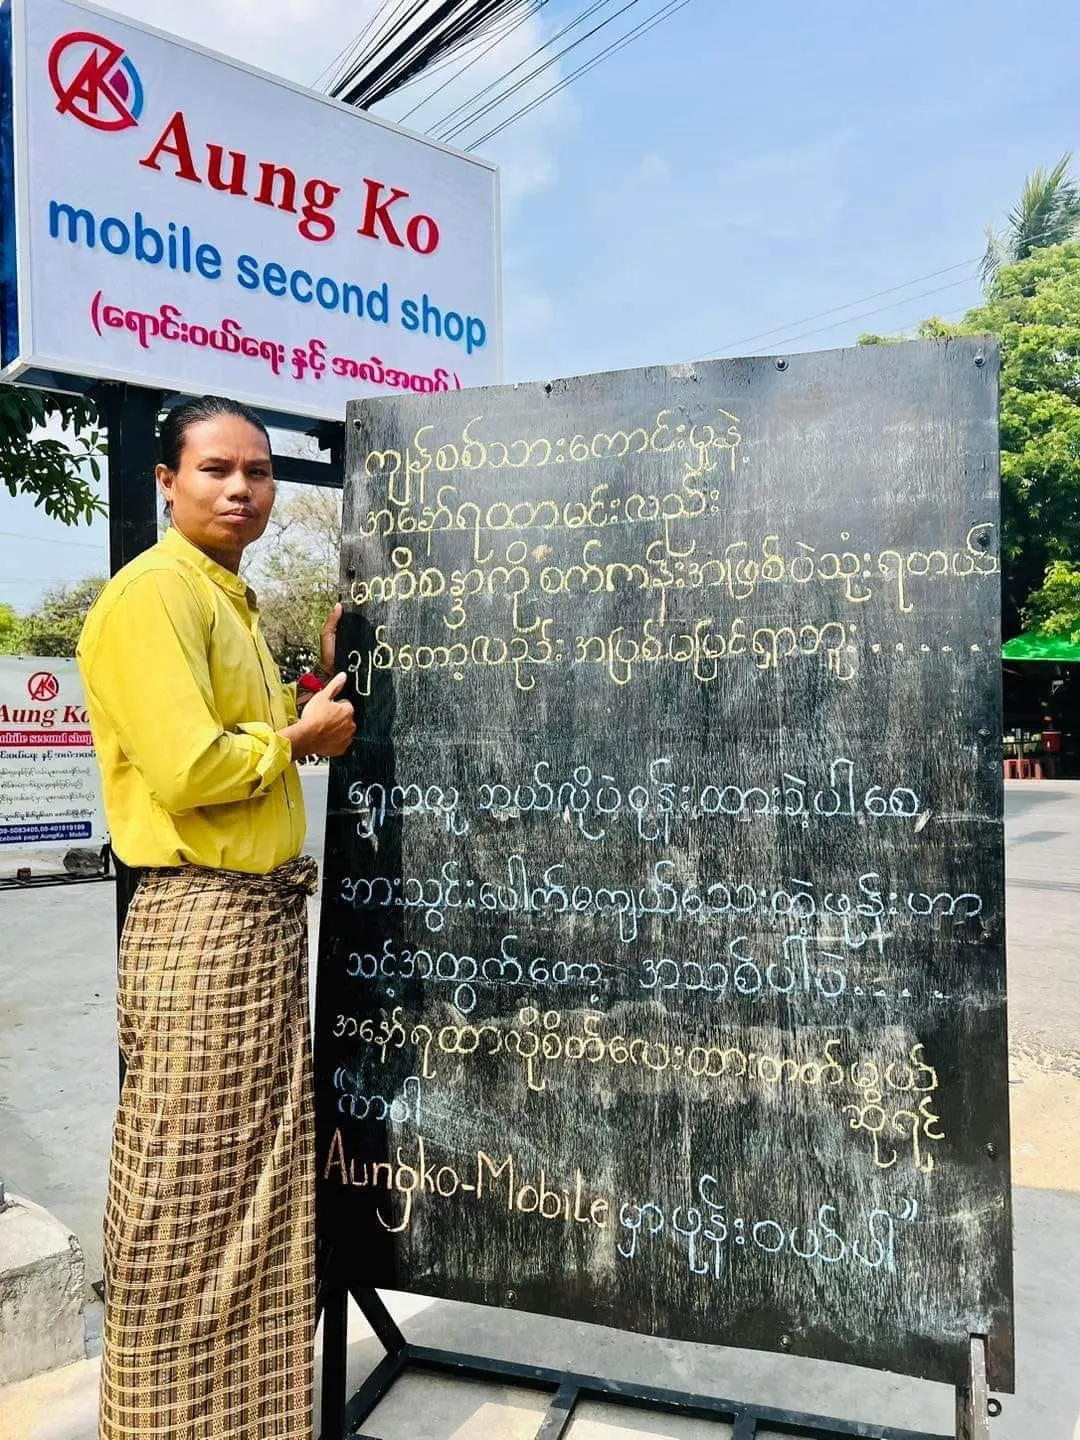 AK
Aung Ko
mobile second shop
(ရောင်းဝယ်ရေး နှင့် အလဲအထပ်)
ကျွန်စစ်သားကောင်းမှုနဲ့
အနော်ရထာမင်းလည်း
မဏိစန္ဒာကို စက်ကန်းအဖြစ်ပဲသုံးရတယ်
ချစ်တော့လည်း အပြစ်မမြင်ရှာဘူး . . . . . .
ရှေ့ကလူ ဘယ်လိုပဲ စွန်းထားခဲ့ပါစေ
အားသွင်းပေါက်မကျယ်သေးတဲ့ဖုန်းဟာ
သင့်အတွက်တော့ အသစ်ပါပဲ. . . . .
အနော်ရထာလိုစိတ်လေးထားတတ်မယ်
ဆိုရင်
“လာပါ
Aungko-Mobile မှာဖုန်းဝယ်ပါ”
AK
Aung Ko
mobile second shop